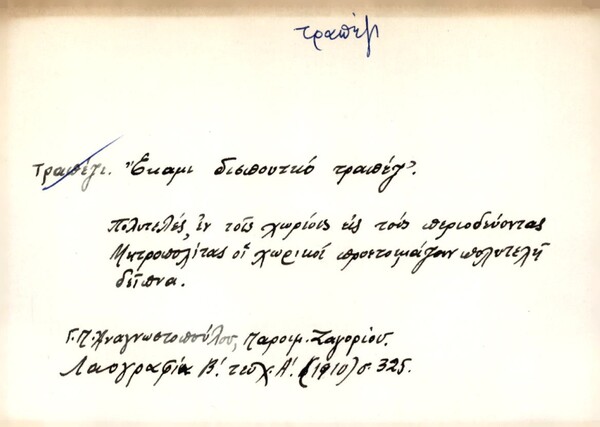 τραπέζι
Τραπέζι. Ἔκαμι δισπουτκό τραπέζ'.
Πολυτελές, ἐν τοῖς χωρίοις εἰς τούς περιοδεύοντας
Μητροπολίτας οἱ χωρικοί προετοιμάζουν πολυτελῆ
δεῖπνα.
Γ. Π. Ἀναγνωστοπούλου, Παροιμ. Ζαγορίου.
Λαογραφία Β'. τεῦχ. Α'. (1910) σ. 325.